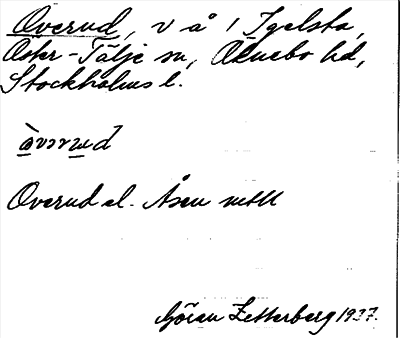 Överud, v å 1 Igelsta,
Öster-Tälje sn, Öknebo hd,
Stockholms l.
òvərud
Överud el. Åsen mtll
Göran Zetterberg 1937.